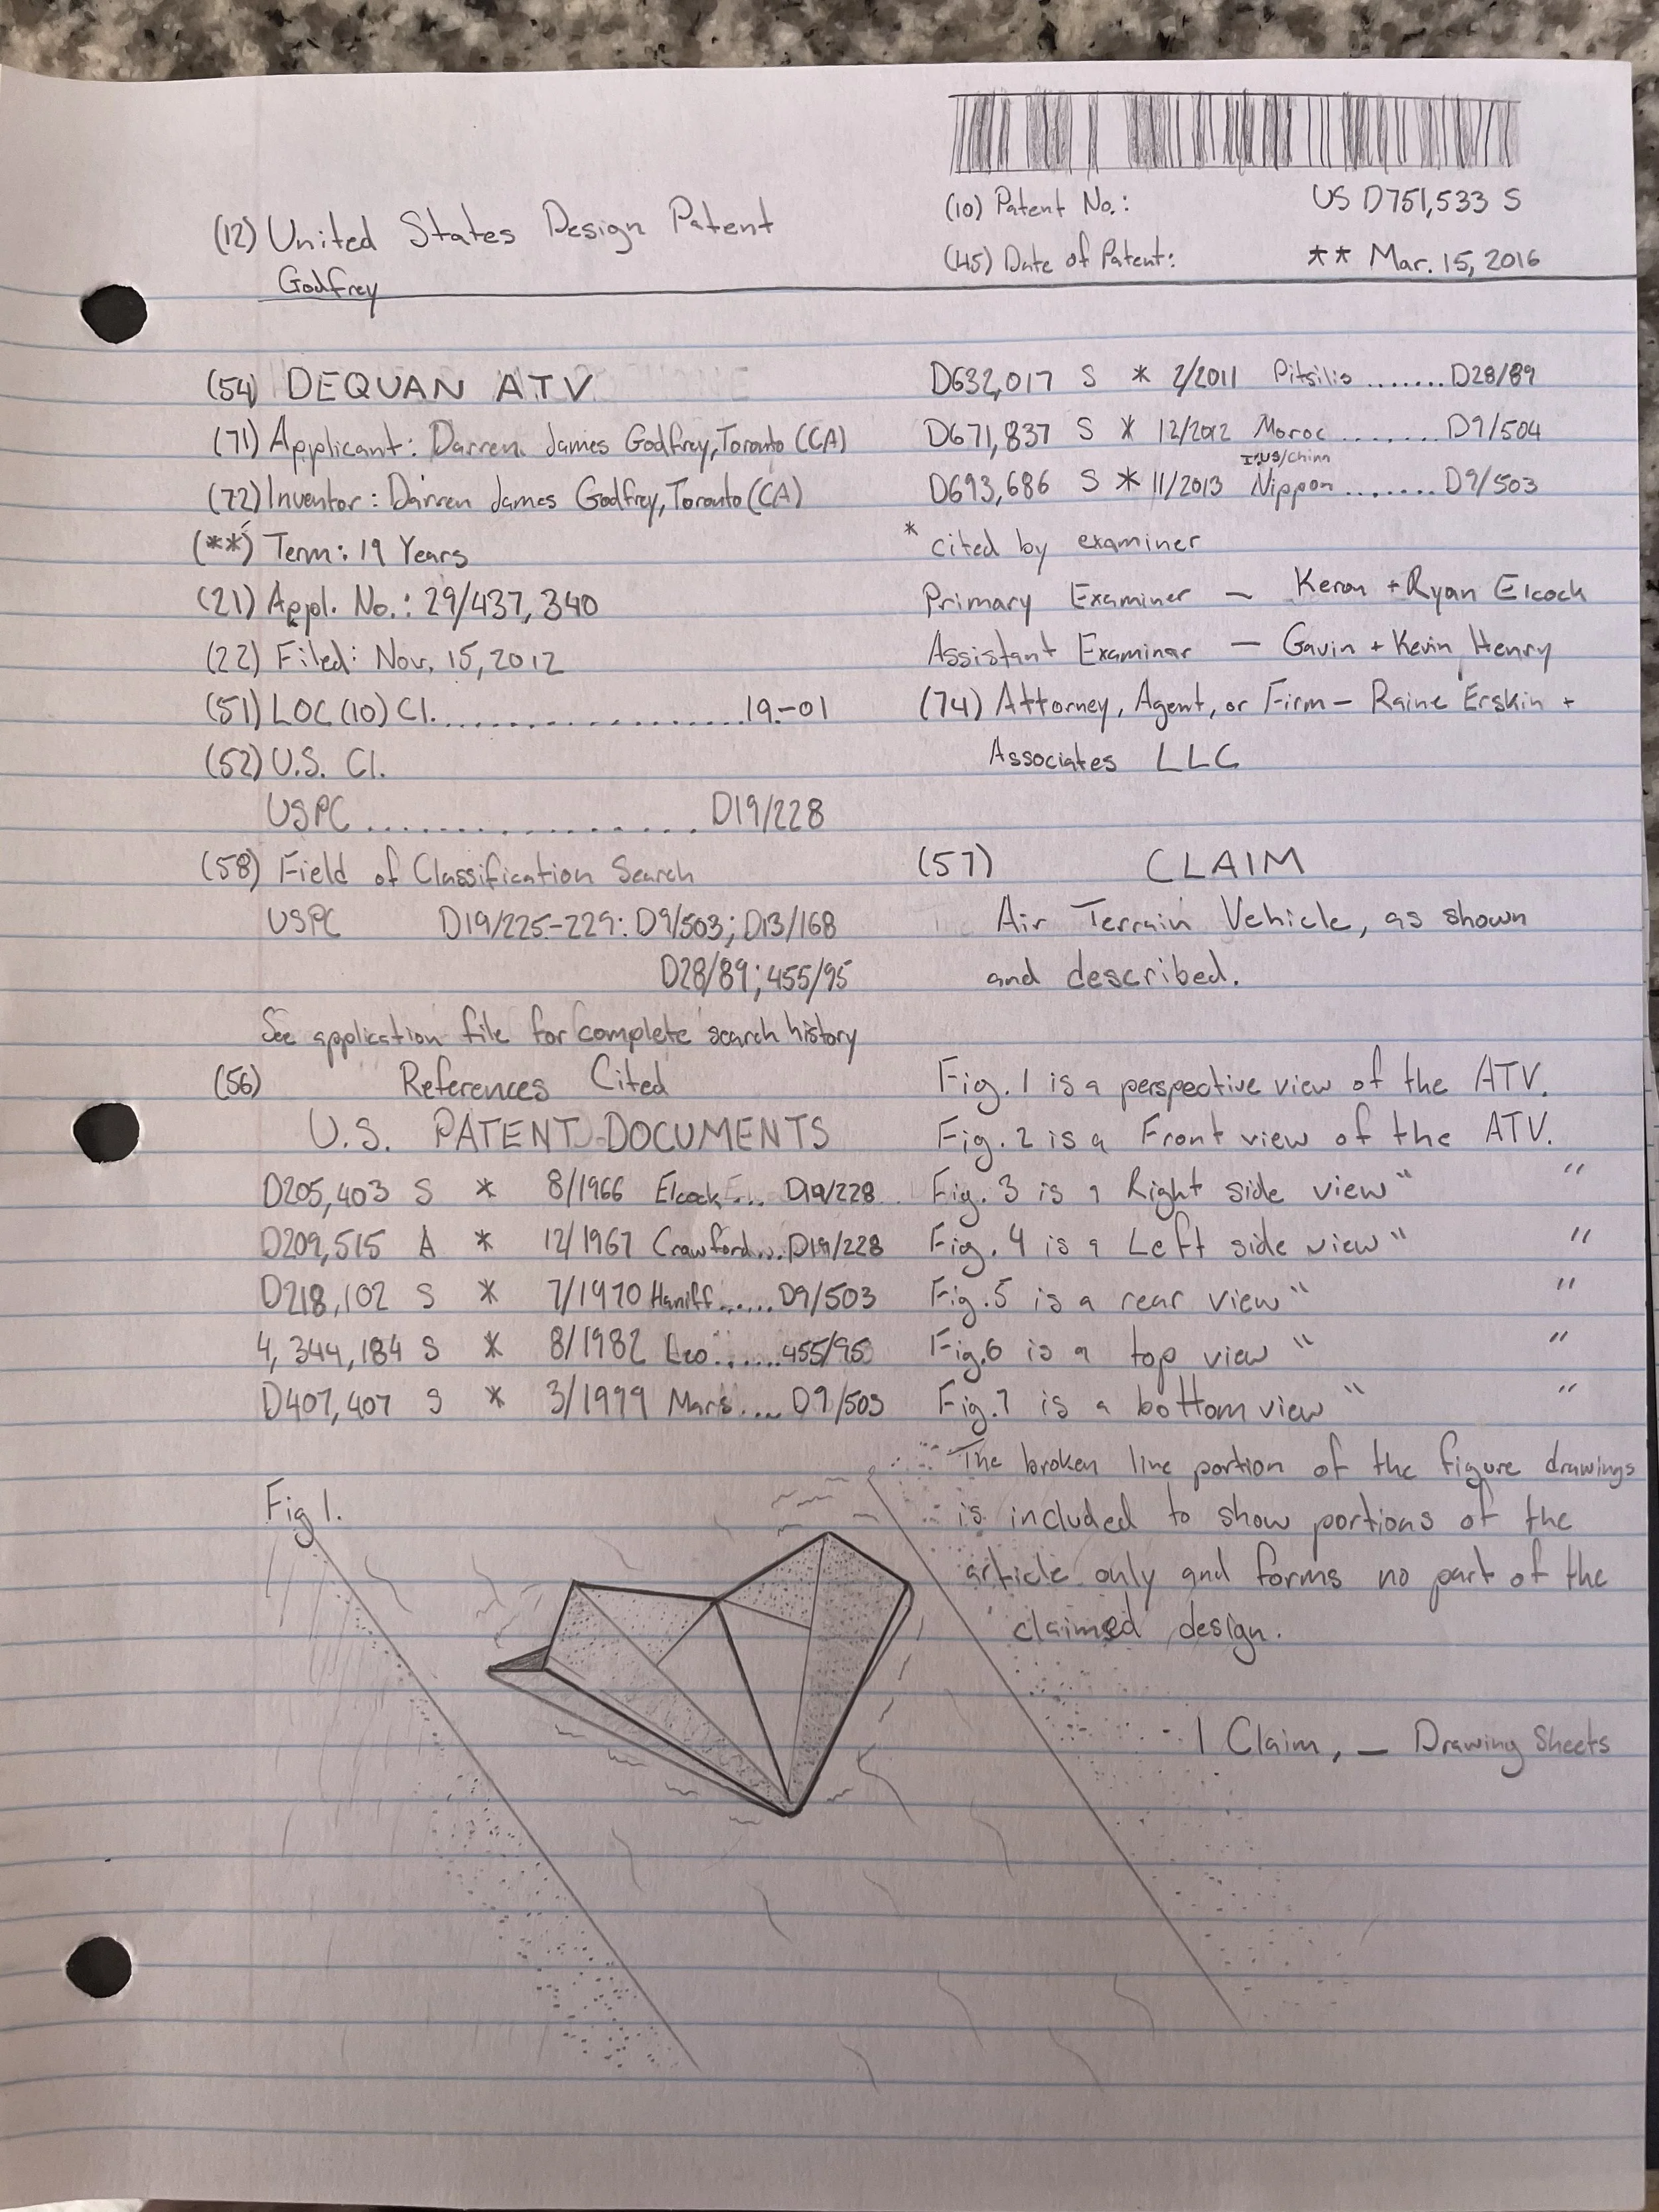 (12) United States Design Patent
Godfrey
(10) Patent No.: US D751,533 S
(45) Date of Patent: ** Mar. 15, 2016
(54) DEQUAN ATV
(71) Applicant: Darren James Godfrey, Toronto (CA)
(72) Inventor: Darren James Godfrey, Toronto (CA)
(**) Term: 19 Years
(21) Appl. No.: 29/437,340
(22) Filed: Nov. 15, 2012
(51) LOC (10) Cl. .................. 19-01
(52) U.S. Cl.
USPC ................ D19/228
(58) Field of Classification Search
USPC D19/225-229: D9/503; D13/168
D28/89; 455/95
See application file for complete search history
(56) References Cited
U.S. PATENT DOCUMENTS
D205,403 S * 8/1966 Elcock.... D19/228
D209,515 A * 12/1967 Crawford... D19/228
D218,102 S * 7/1970 Haniff...... D9/503
4,344,184 S * 8/1982 Leo....... 455/95
D407,407 S * 3/1999 Mars.... D9/503
Fig 1.
D632,017 S * 2/2011 Pitsilis ....... D28/89
D671,837 S * 12/2012 Moroc ........ D9/504
D693,686 S * 11/2013 Nippon ....... D9/503
* cited by examiner
Primary Examiner — Keron + Ryan Elcock
Assistant Examinar — Gavin + Kevin Henry
(74) Attorney, Agent, or Firm — Raine Erskin +
Associates LLC
(57) CLAIM
Air Terrain Vehicle, as shown
and described.
Fig. 1 is a perspective view of the ATV.
Fig. 2 is a Front view of the ATV.
Fig. 3 is a Right side view " "
Fig. 4 is a Left side view " "
Fig. 5 is a rear view " "
Fig. 6 is a top view " "
Fig. 7 is a bottom view " "
The broken line portion of the figure drawings
is included to show portions of the
article only and forms no part of the
claimed design.
1 Claim, — Drawing Sheets